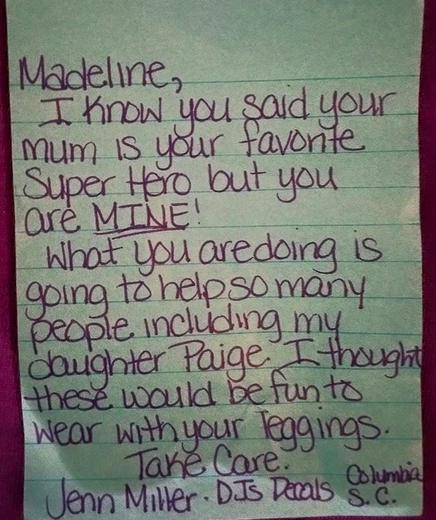 Madeline,
I know you said your
mum is your favorite
Super Hero but you
are MINE!
What you are doing is
going to help so many
people including my
daughter Paige. I thought
these would be fun to
wear with your leggings.
Take Care.
Jenn Miller. DJs Decals Columbia
S.C.